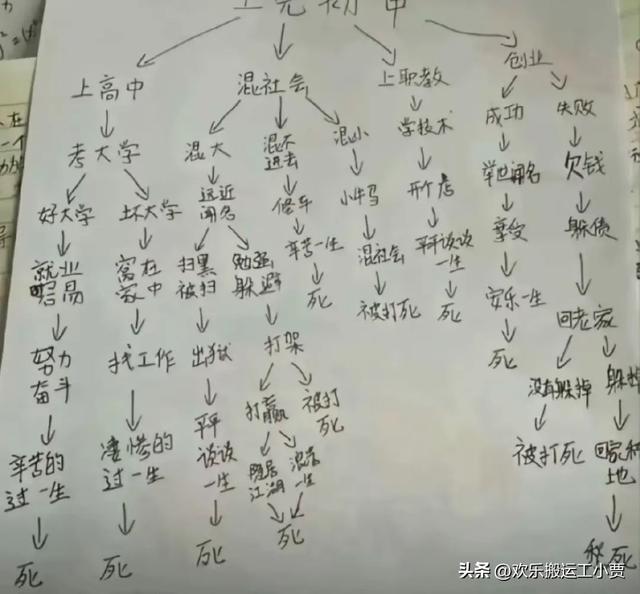 上完初中
上高中 混社会 上职教 创业
考大学 混大 混不进去 混小 学技术 成功 失败
好大学 坏大学 远近闻名 修车 小牛马 开个店 举世闻名 欠钱
就业容易 窝在家中 扫黑被扫 勉强躲避 辛苦一生 混社会 平平谈谈一生 享受 躲债
死 被打死 死 安乐一生 回老家
努力奋斗 找工作 出狱 打架 死 没有躲掉 躲掉
打赢 被打死
辛苦的过一生 凄惨的过一生 平平谈谈一生 隐居江湖 浪荡一生 被打死 回家种地
死 死 死 死 死
头条 @欢乐搬运工小贾